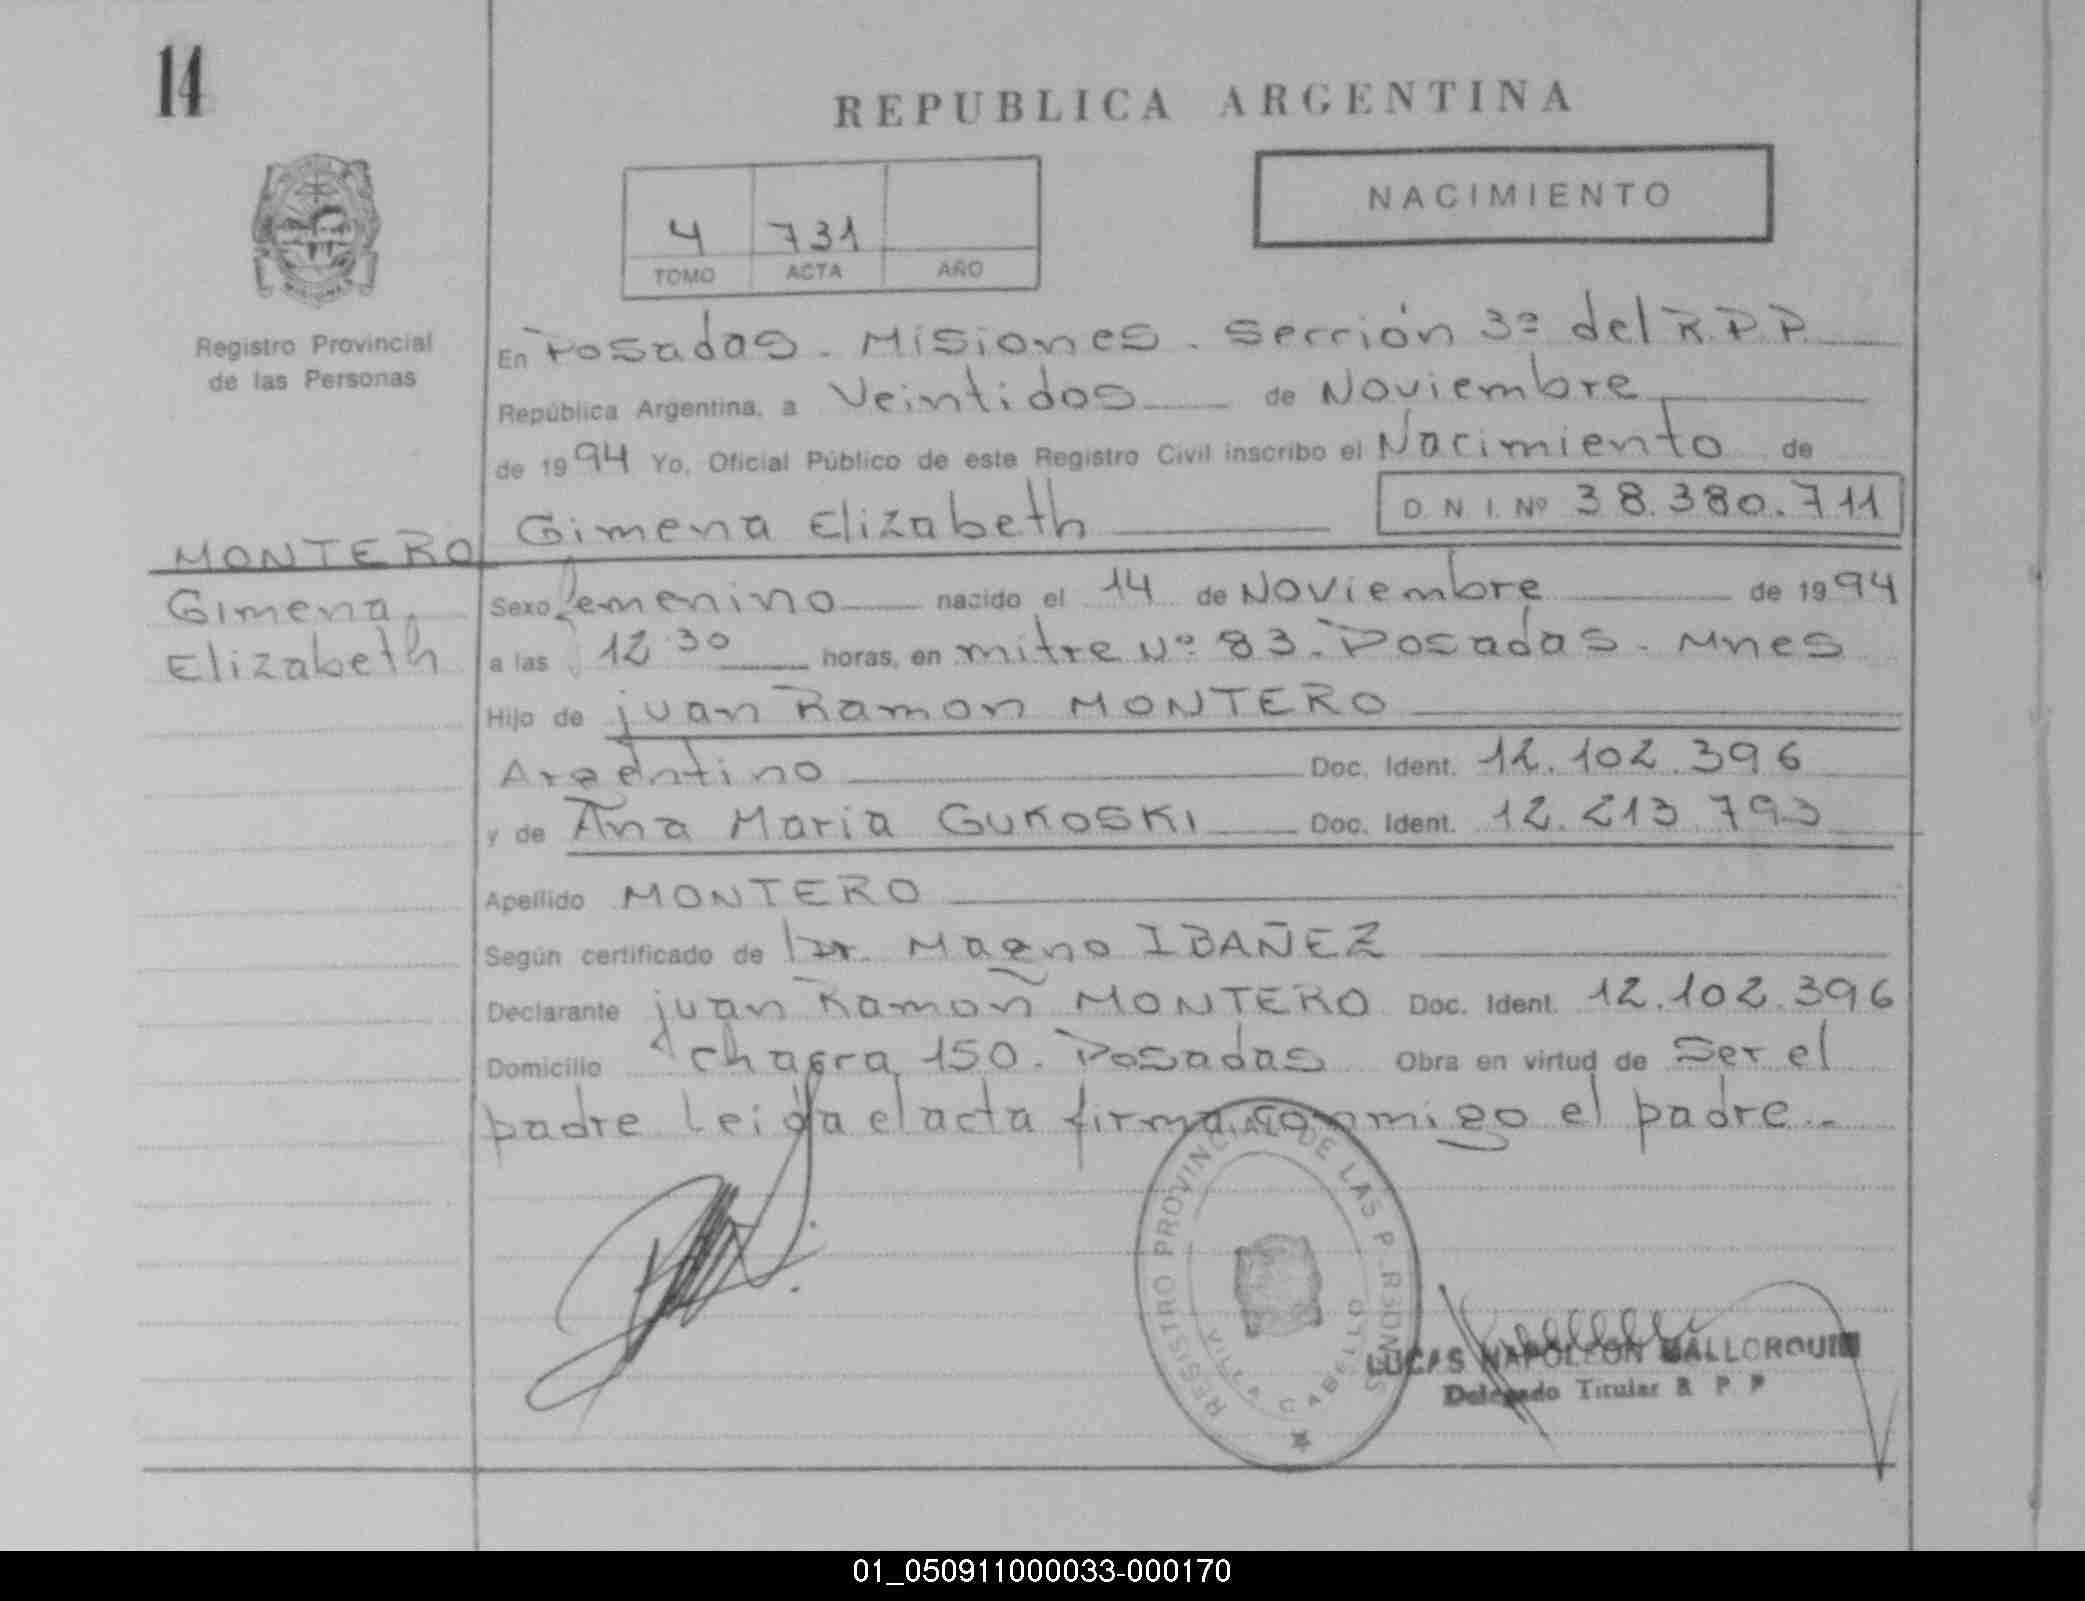 14
REPUBLICA ARGENTINA
NACIMIENTO
4 731
TOMO ACTA AÑO
Registro Provincial
de las Personas
En Posadas - Misiones - Sección 3ª del R.P.P.
República Argentina, a Veintidos de Noviembre
de 1994 Yo, Oficial Público de este Registro Civil inscribo el Nacimiento de
Gimena Elizabeth D.N.I. Nº 38.380.711
MONTERO
Gimena
Elizabeth
Sexo femenino nacido el 14 de Noviembre de 1994
a las 12 30 horas, en mitre Nº 83 - Posadas - Mnes
Hijo de juan Ramon MONTERO
Argentino Doc. Ident. 12.102.396
y de Ana Maria GUKOSKI Doc. Ident. 12.213 793
Apellido MONTERO
Según certificado de Dr. Magno IBAÑEZ
Declarante juan Ramon MONTERO Doc. Ident. 12.102.396
Domicilio chagra 150 - Posadas Obra en virtud de Ser el
padre Leida el acta firma conmigo el padre.-
REGISTRO PROVINCIAL DE LAS PERSONAS
VILLA CABELLO
LUCAS NAPOLEON MALLORQUIN
Delegado Titular R P P
01_050911000033-000170